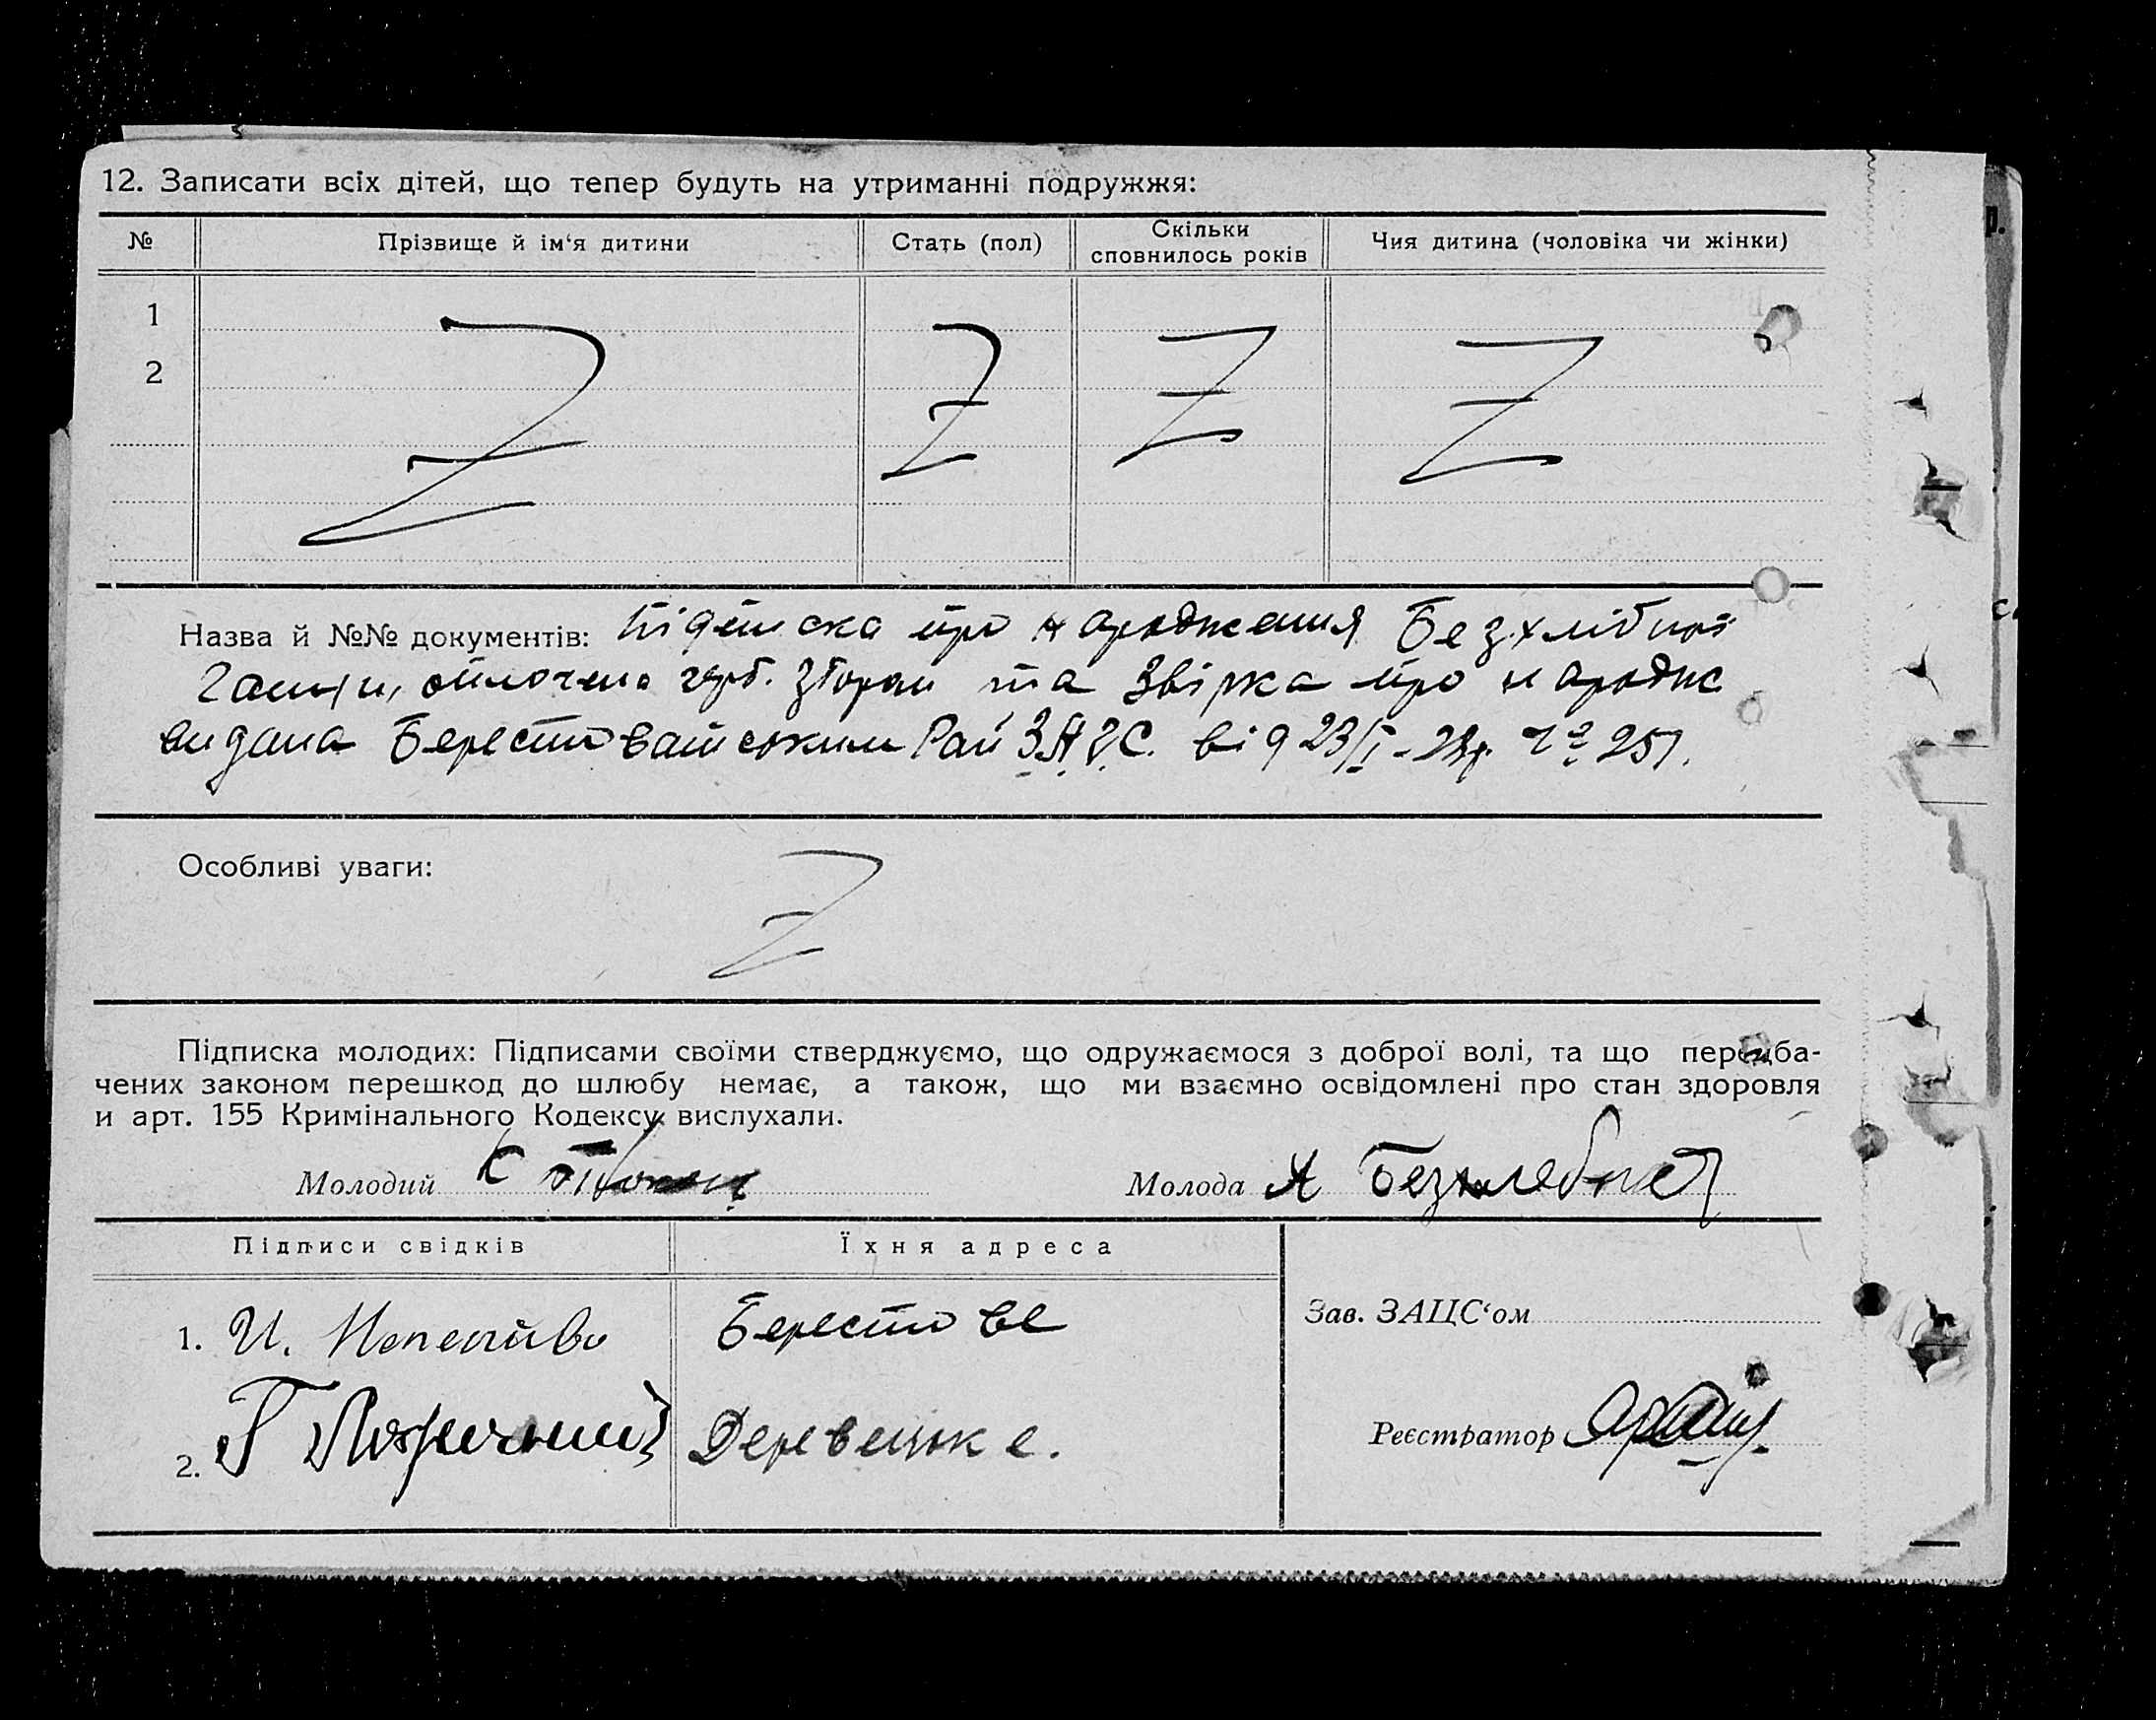 12. Записати всіх дітей, що тепер будуть на утриманні подружжя:
№ Прізвище й ім‘я дитини Стать (пол) Скільки сповнилось років Чия дитина (чоловіка чи жінки)
1 Z Z Z Z
2
Назва й №№ документів: Підписка про народження Безхлібної
оплочена герб. збором та Звірка про народж
видана Берестоватським Рай З.А.Г.С. від 23/І-
Особливі уваги: Z
Підписка молодих: Підписами своїми стверджуємо, що одружаємося з доброї волі, та що передба-
чених законом перешкод до шлюбу немає, а також, що ми взаємно освідомлені про стан здоровля
и арт. 155 Кримінального Кодексу вислухали.
Молодий К Молода А
Підписи свідків Їхня адреса
1. И. Берестове
Зав. ЗАЦС‘ом
2. Г
Реєстратор